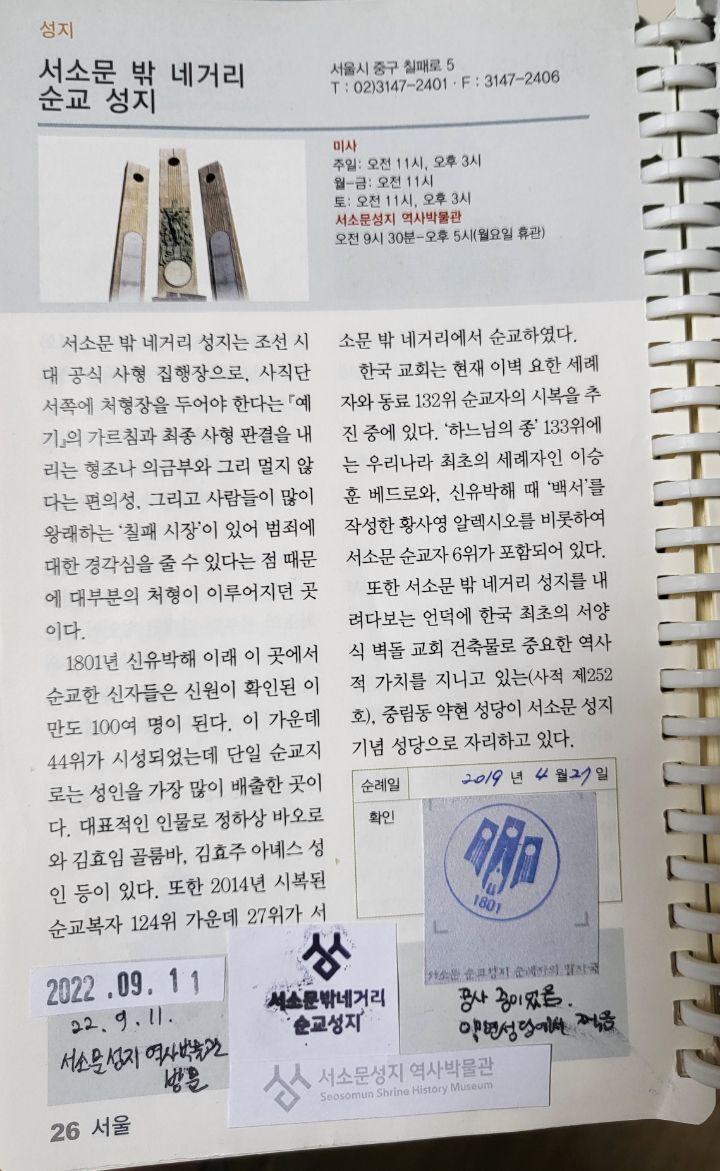 성지
서소문 밖 네거리
순교 성지
서울시 중구 칠패로 5
T : 02)3147-2401 · F : 3147-2406
미사
주일: 오전 11시, 오후 3시
월-금: 오전 11시
토: 오전 11시, 오후 3시
서소문성지 역사박물관
오전 9시 30분-오후 5시(월요일 휴관)
서소문 밖 네거리 성지는 조선 시
대 공식 사형 집행장으로, 사직단
서쪽에 처형장을 두어야 한다는 『예
기』의 가르침과 최종 사형 판결을 내
리는 형조나 의금부와 그리 멀지 않
다는 편의성, 그리고 사람들이 많이
왕래하는 ‘칠패 시장’이 있어 범죄에
대한 경각심을 줄 수 있다는 점 때문
에 대부분의 처형이 이루어지던 곳
이다.
1801년 신유박해 이래 이 곳에서
순교한 신자들은 신원이 확인된 이
만도 100여 명이 된다. 이 가운데
44위가 시성되었는데 단일 순교지
로는 성인을 가장 많이 배출한 곳이
다. 대표적인 인물로 정하상 바오로
와 김효임 골룸바, 김효주 아녜스 성
인 등이 있다. 또한 2014년 시복된
순교복자 124위 가운데 27위가 서
소문 밖 네거리에서 순교하였다.
한국 교회는 현재 이벽 요한 세례
자와 동료 132위 순교자의 시복을 추
진 중에 있다. ‘하느님의 종’ 133위에
는 우리나라 최초의 세례자인 이승
훈 베드로와, 신유박해 때 ‘백서’를
작성한 황사영 알렉시오를 비롯하여
서소문 순교자 6위가 포함되어 있다.
또한 서소문 밖 네거리 성지를 내
려다보는 언덕에 한국 최초의 서양
식 벽돌 교회 건축물로 중요한 역사
적 가치를 지니고 있는(사적 제252
호), 중림동 약현 성당이 서소문 성지
기념 성당으로 자리하고 있다.
순례일 2019 년 4 월 27 일
확인
1801
2022.09.11
22. 9. 11.
서소문성지 역사박물관
방문
서소문밖네거리
순교성지
공사 중이었음.
약현성당에서 찍음
서소문성지 역사박물관
Seosomun Shrine History Museum
26 서울